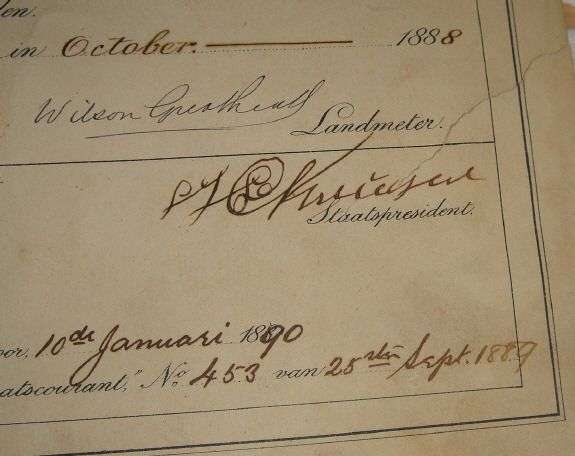 en.
in October. 1888
Wilson Greathead
Landmeter.
Staatspresident.
oor. 10de Januari 1890
atscourant," No. 453 van 25sten Sept. 1889